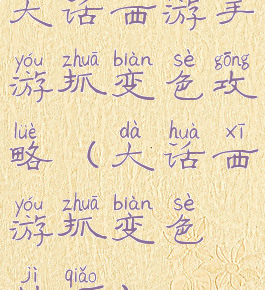 大话西游手
yóu zhuā biàn sè gōng
游抓变色攻
lüè dà huà xī
略（大话西
yóu zhuā biàn sè
游抓变色
jì qiǎo